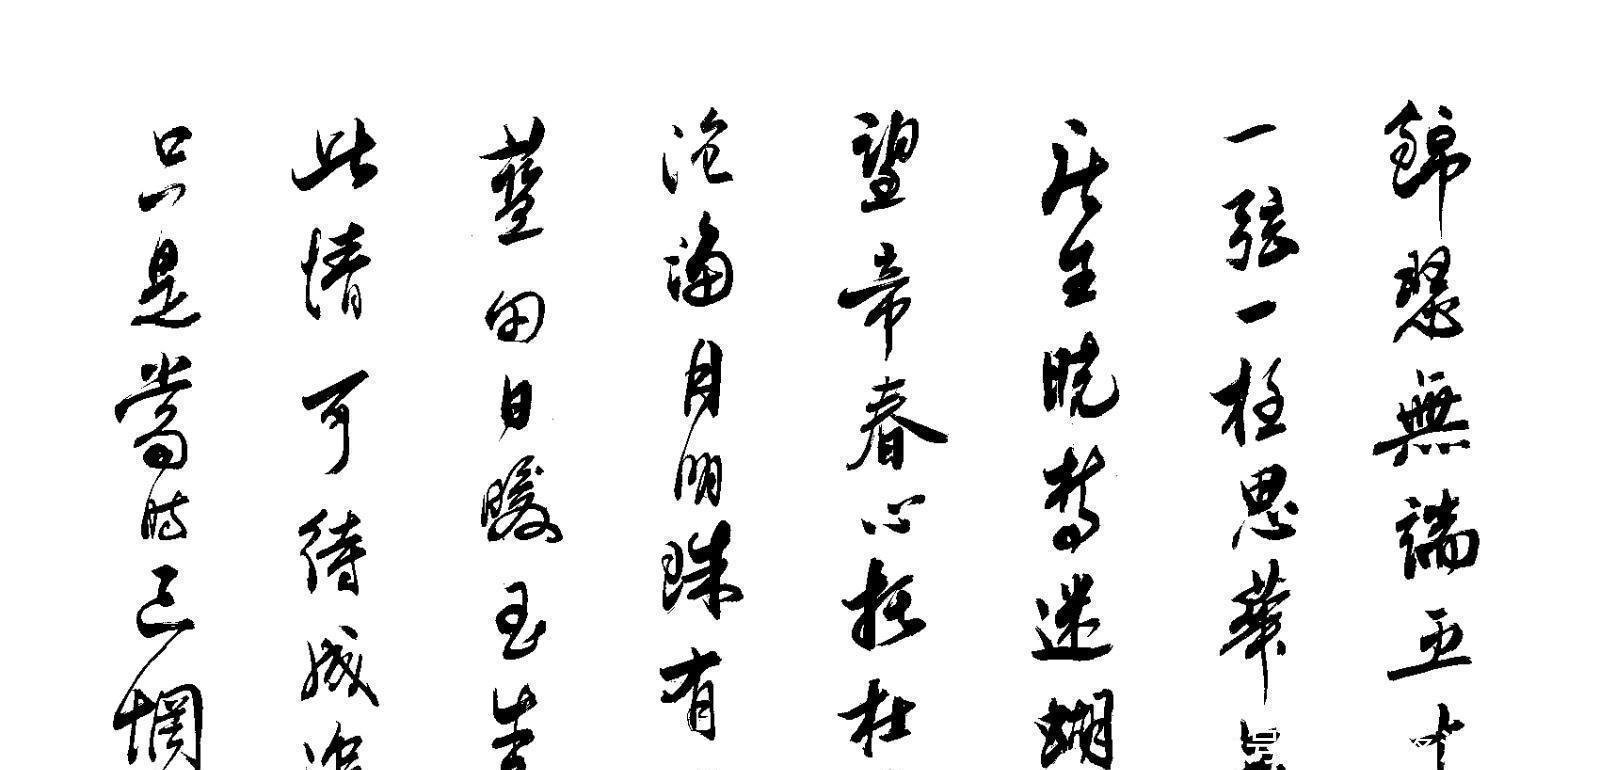 錦瑟無端五十
一弦一柱思華
莊生曉夢迷蝴
望帝春心托杜
滄海月明珠有
藍田日暖玉生
此情可待成追
只是當時已惘